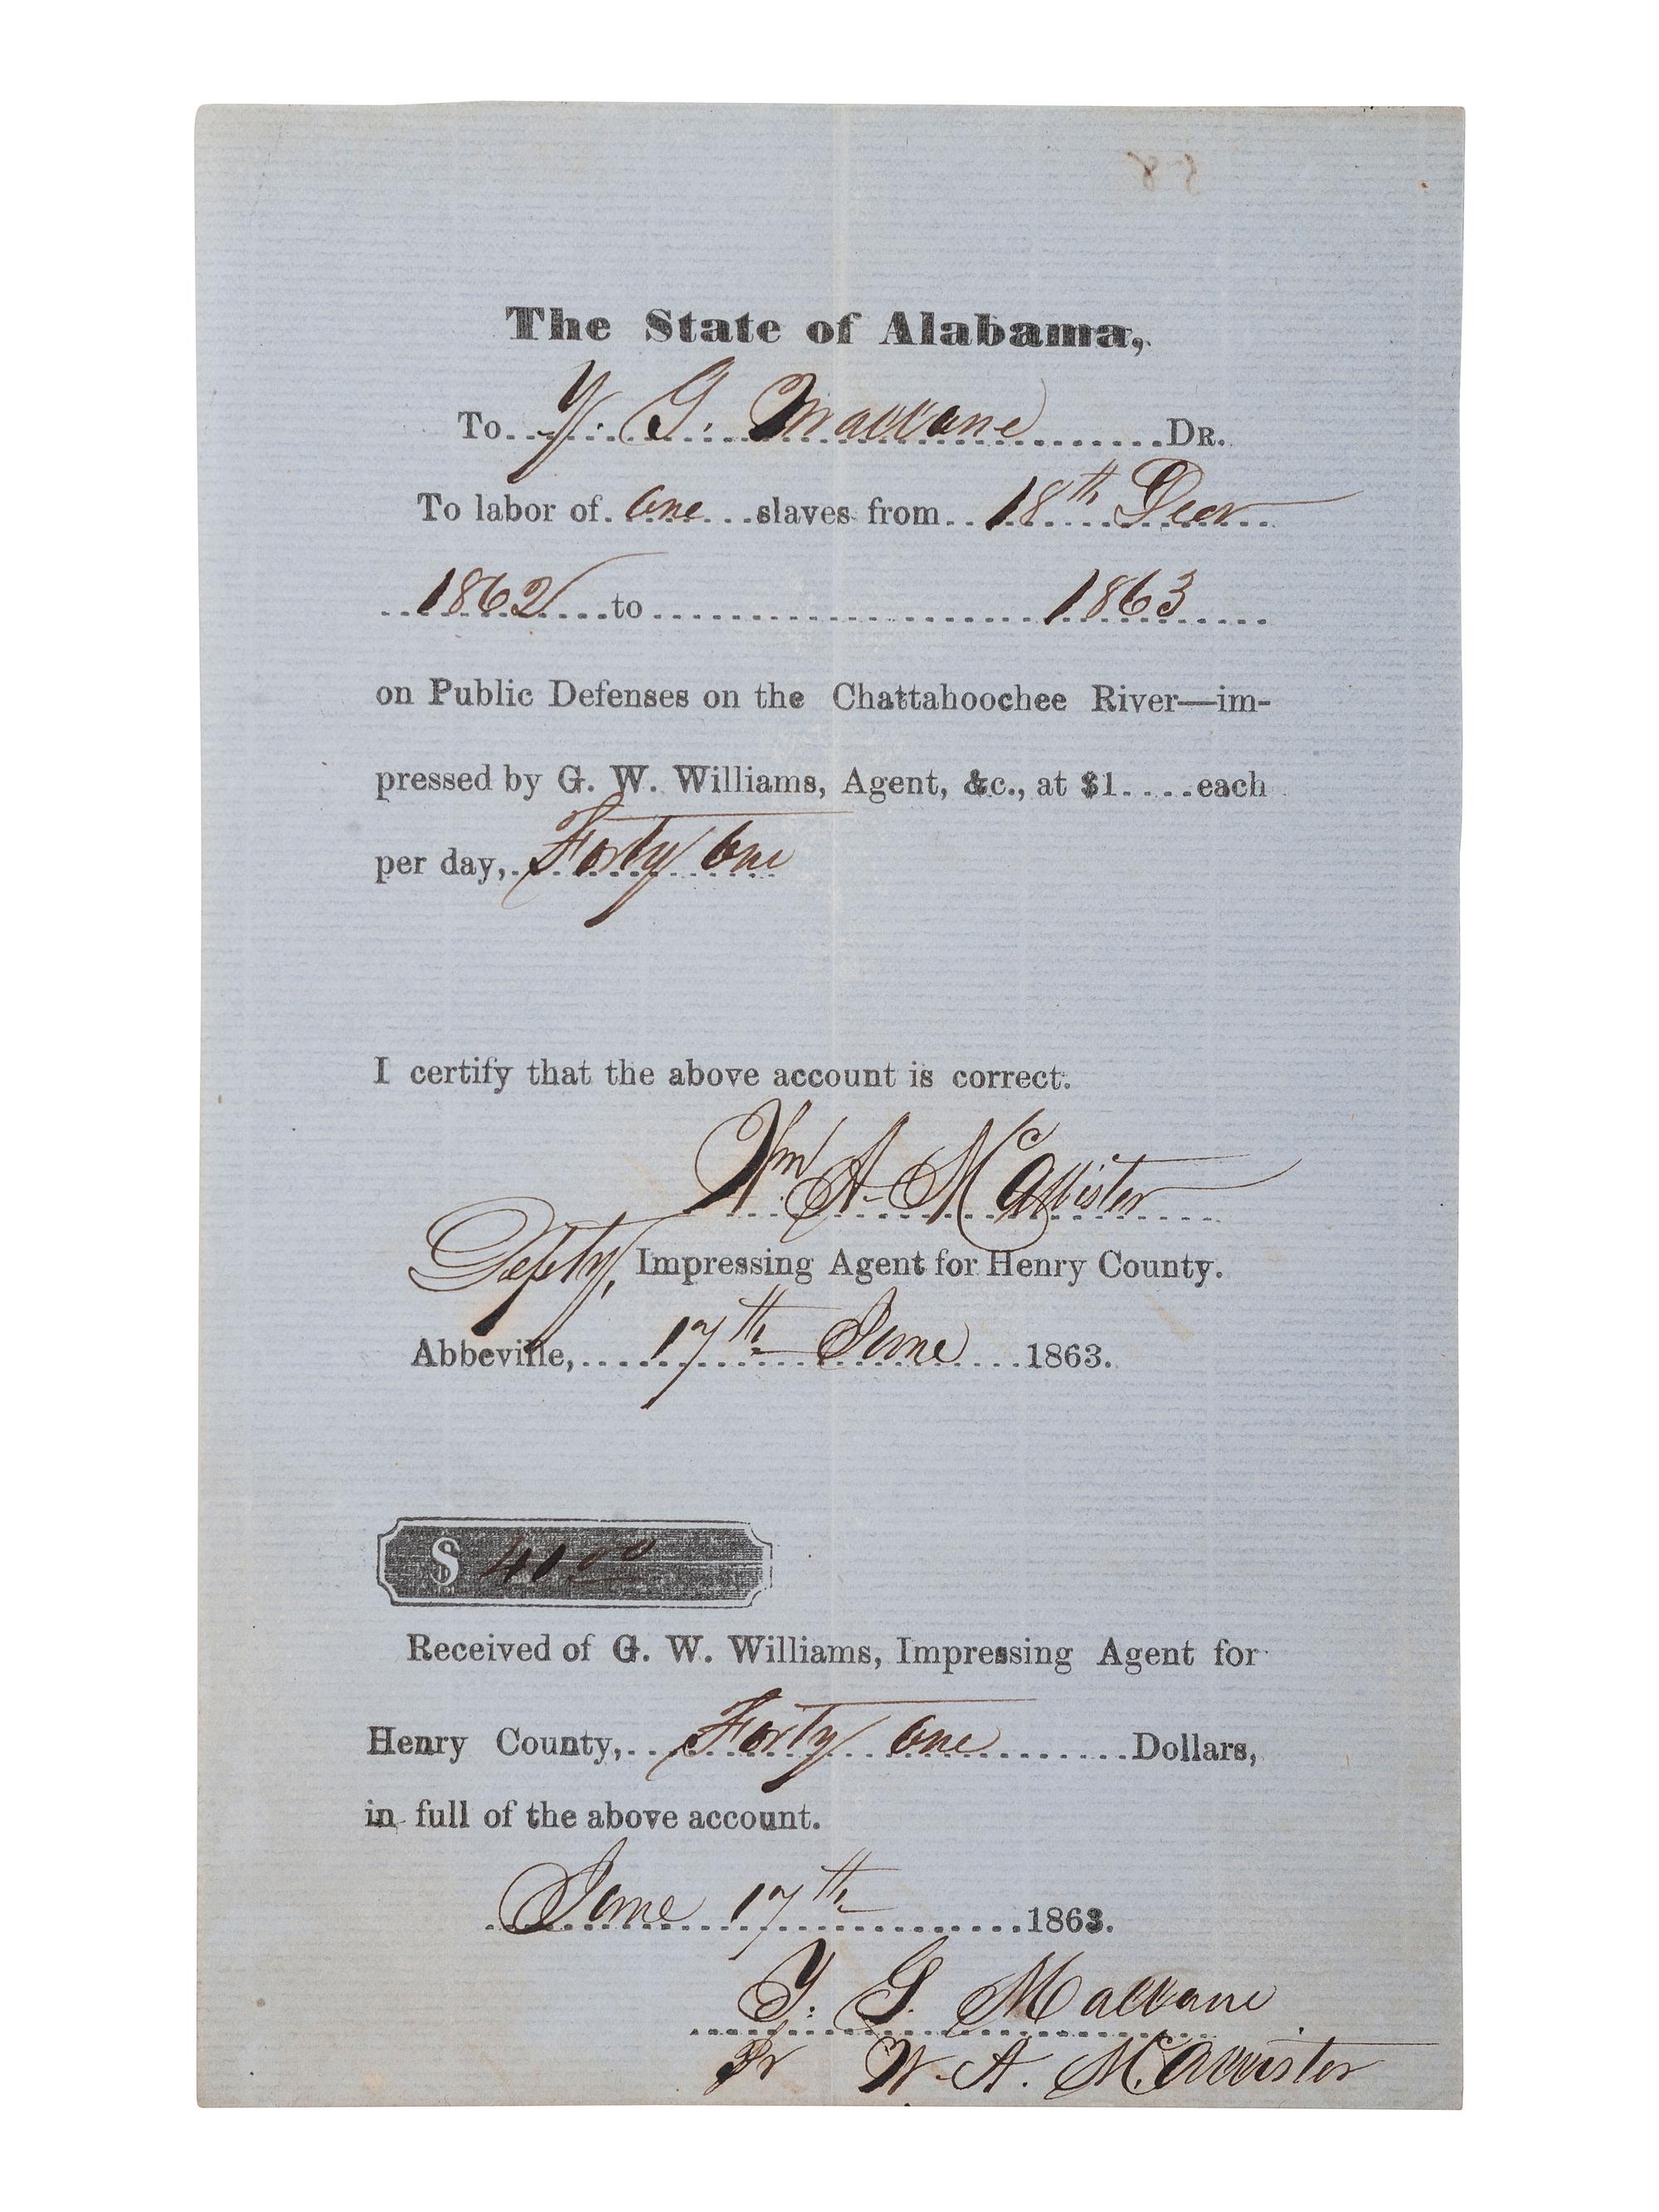 58
The State of Alabama,
To Y. G. Malvane DR.
To labor of one slaves from 18th Decr
1862 to 1863
on Public Defenses on the Chattahoochee River—im-
pressed by G. W. Williams, Agent, &c., at $1 each
per day, Forty One
I certify that the above account is correct.
Wm A. McAllister
Depty, Impressing Agent for Henry County.
Abbeville, 17th June 1863.
$ 41 00
Received of G. W. Williams, Impressing Agent for
Henry County, Forty One Dollars,
in full of the above account.
June 17th 1863.
Y. G. Malvane
Pr W. A. McAllister